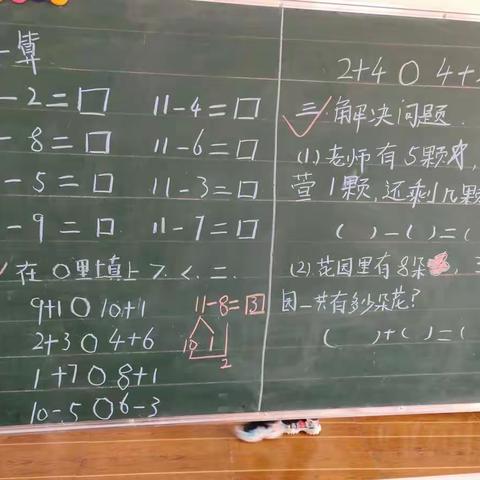 算
-2=□ 11-4=□
-8=□ 11-6=□
-5=□ 11-3=□
-9=□ 11-7=□
在○里填上>.<.=.
9+1○10+1
2+3○4+6
1+7○8+1
10-5○6-3
11-8=3
10 1
2
2+4○4+
三.解决问题.
(1)老师有5颗
1颗,还剩几颗
( )-( )=(
(2)花园里有8朵
园一共有多少朵花?
( )+( )=(